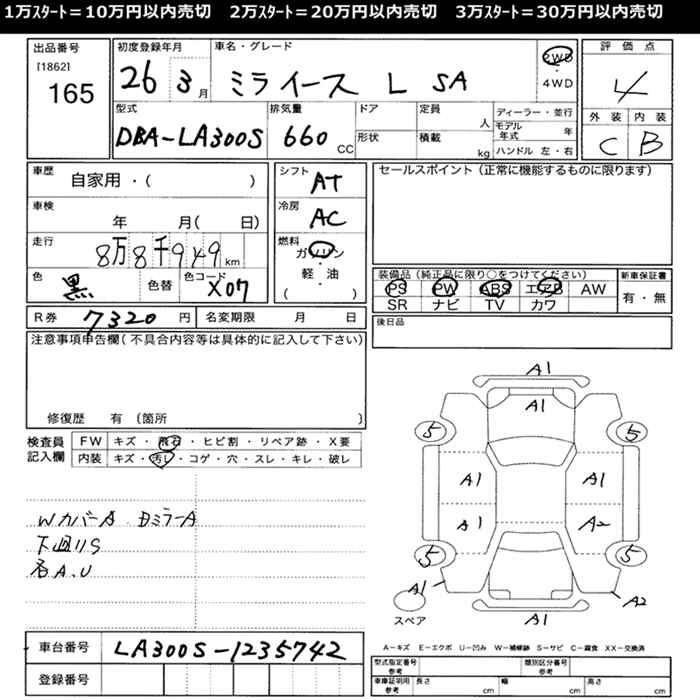 1万ｽﾀｰﾄ＝10万円以内売切　2万ｽﾀｰﾄ＝20万円以内売切　3万ｽﾀｰﾄ＝30万円以内売切
出品番号
[1862]
165
初度登録年月
26 3月
車名・グレード
ミライース L SA
2WD
4WD
評価点
4
外装 内装
C B
型式
DBA-LA300S
排気量
660 CC
ドア
形状
定員 人
積載 kg
ディーラー・並行
モデル年式 年
ハンドル 左・右
車歴
自家用・( )
車検
年 月( 日)
走行
8万8千949km
色
黒 色替
色コード
X07
シフト
AT
冷房
AC
燃料
ガソリン
・
軽・油
( )
セールスポイント(正常に機能するものに限ります)
装備品(純正品に限り○をつけてください)
PS PW ABS エアB AW
SR ナビ TV カワ
新車保証書
有・無
R券 7320 円 名変期限 月 日
後日品
注意事項申告欄(不具合内容等は具体的に記入して下さい)
修復歴 有 (箇所 )
検査員
記入欄
FW キズ・飛石・ヒビ割・リペア跡・X要
内装 キズ・汚レ・コゲ・穴・スレ・キレ・破レ
WカバーA DミラーA
下廻りS
各A.U
A1
A1
5 5
A1 A1
A1 A2
5 5
A1 A2
A1
スペア
A－キズ E－エクボ U－凹み W－補修跡 S－サビ C－腐食 XX－交換済
車台番号 LA300S-1235742
登録番号
型式指定番号
参考
類別区分番号
参考
車庫証明用
参考
長さ cm 幅 cm 高さ cm